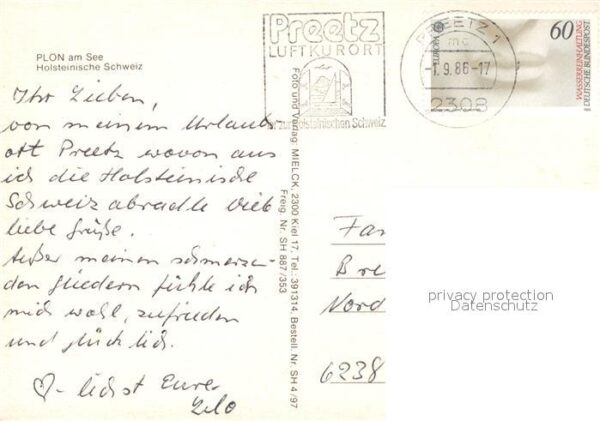 PLON am See
Holsteinische Schweiz
Ihr Lieben,
von meinem Urlaubs
ort Preetz wovon aus
ich die Holsteinische
Schweiz abradle viele
liebe Grüße.
Außer meinen schmerzen-
den Gliedern fühle ich
mich wohl, zufrieden
und glücklich.
♡-lichst Eure
Lilo
Preetz
LUFTKURORT
zur Holsteinischen Schweiz
PREETZ 1
mc
-1.9.86-17
2308
EUROPA
60
WASSERREINHALTUNG
DEUTSCHE BUNDESPOST
Foto und Verlag: MIELCK, 2300 Kiel 17, Tel.: 391314, Bestell. Nr. SH 4/97
Freig. Nr. SH 887/353
Fa
Bre
Nord
6238
privacy protection
Datenschutz